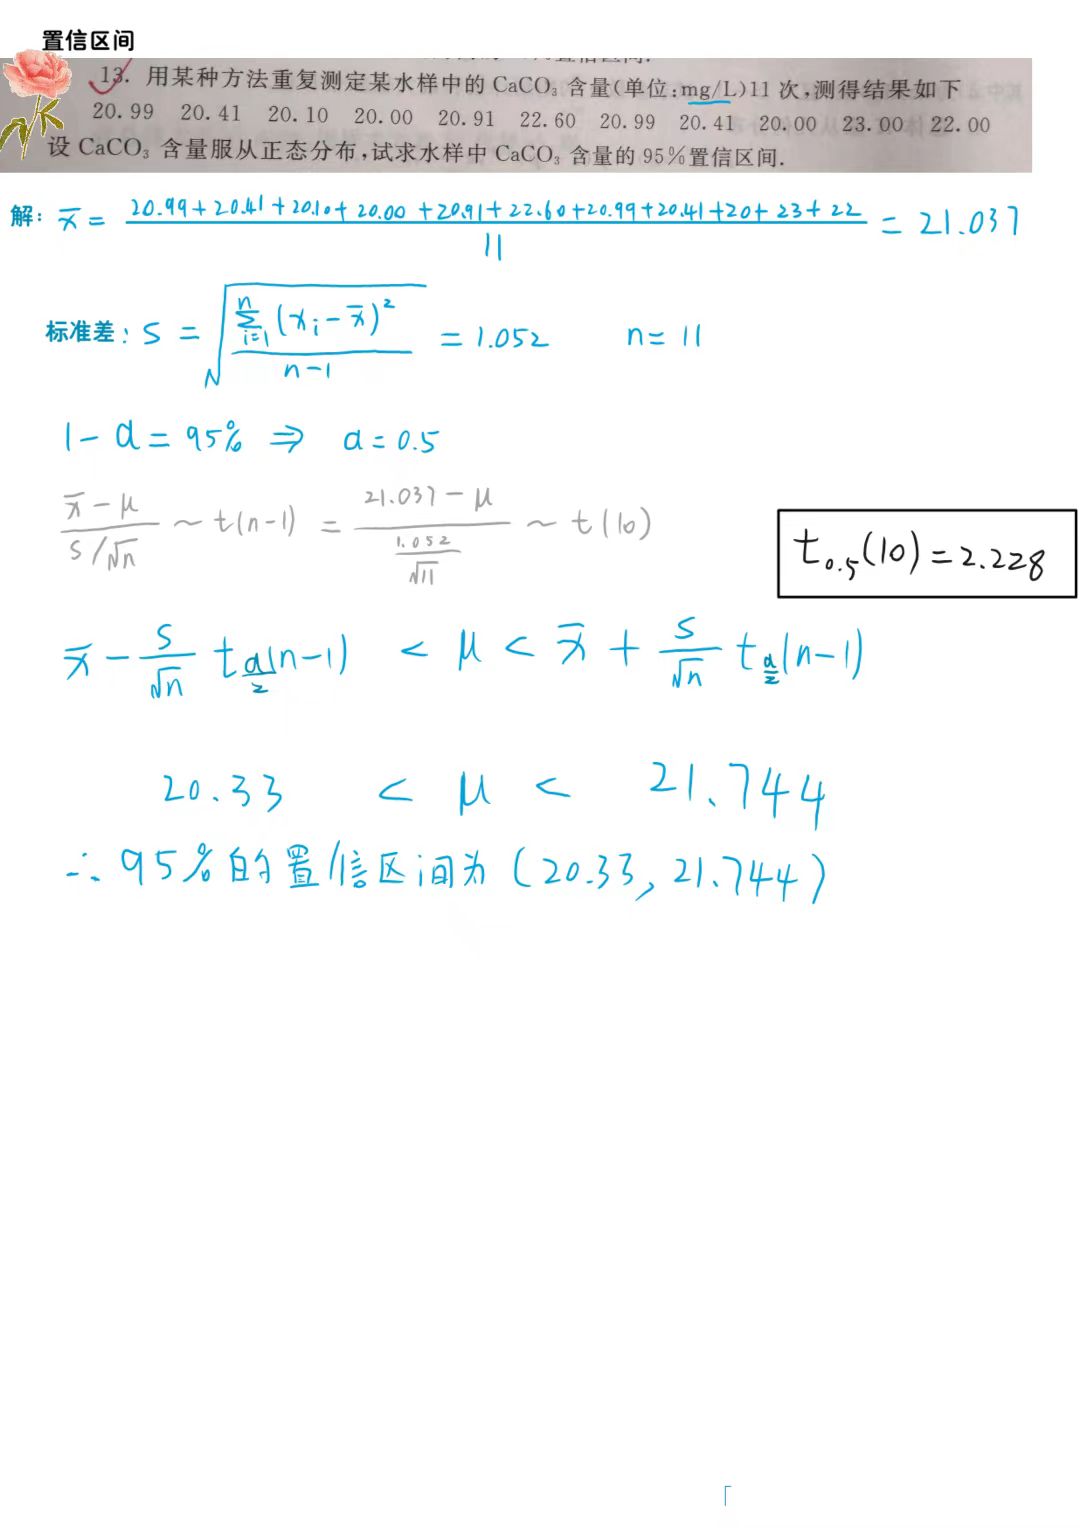 置信区间
13. 用某种方法重复测定某水样中的 CaCO₃ 含量(单位:mg/L)11 次,测得结果如下
20.99 20.41 20.10 20.00 20.91 22.60 20.99 20.41 20.00 23.00 22.00
设 CaCO₃ 含量服从正态分布,试求水样中 CaCO₃ 含量的 95%置信区间.
解: x̄ = (20.99+20.41+20.10+20.00+20.91+22.60+20.99+20.41+20+23+22)/11 = 21.037
标准差: S = √(∑ⁿᵢ₌₁(xᵢ-x̄)²/(n-1)) = 1.052 n= 11
1-α = 95% ⇒ α=0.5
(x̄-μ)/(S/√n) ~ t(n-1) = (21.037-μ)/(1.052/√11) ~ t(10)
t₀.₅(10)=2.228
x̄ - S/√n t_α/2(n-1) < μ < x̄ + S/√n t_α/2(n-1)
20.33 < μ < 21.744
∴ 95%的置信区间为(20.33, 21.744)